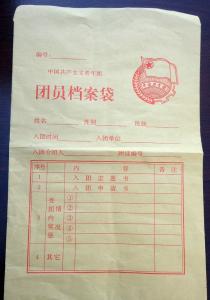 编号:
中国共产主义青年团
团员档案袋
姓名 性别 民族
入团时间 入团单位
入团介绍人 团证编号
序号 内容 备注
1 入团志愿书
2 入团申请书
3 受团内奖惩情况 ①
②
③
④
⑤
4 其它